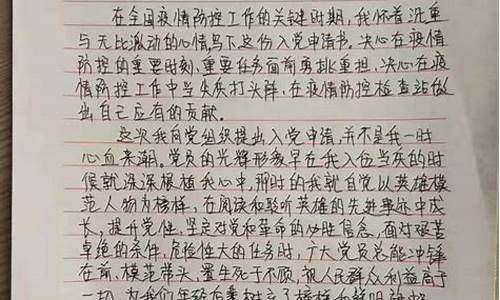 在全国疫情防控工作的关键时期,我怀着沉重
与无比激动的心情写下这份入党申请书。决心在疫情
防控的重要时刻、重要任务面前勇挑重担,决心在疫
情防控工作中当先灰打头阵,在疫情防控检查站做
出自己应有的贡献。
这次我向党组织提出入党申请,并不是我一时
心血来潮。党员的光辉形象早在我入伍当灰的时
候就深深根植我心中,那时的我就自觉以英雄模
范人物为榜样,在阅读和聆听英雄的先进事迹中成
长,提升党性,坚定对党和革命的必胜信念,面对艰苦
卓绝的条件,危险性大的任务时,广大党员总能冲锋
在前,模范带头,置生死于不顾,视人民群众利益高于
一切,为我们年轻